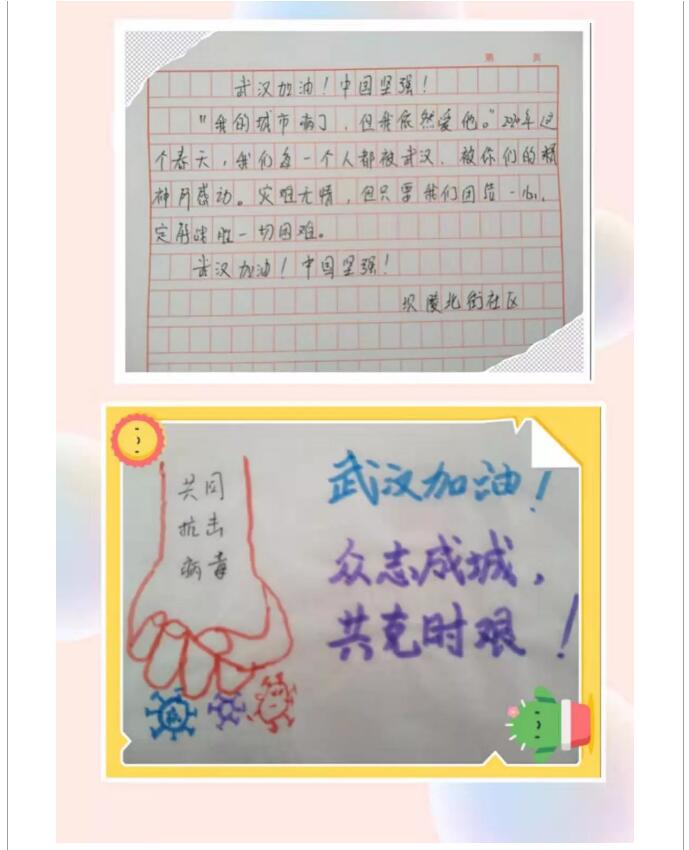 第 页
武汉加油！中国坚强！
“我的城市病了，但我依然爱他。”2020年这
个春天，我们每一个人都被武汉、被你们的精
神所感动。灾难无情，但只要我们团结一心，
定能战胜一切困难。
武汉加油！中国坚强！
坝陵北街社区
共同
抗击
病毒
武汉加油！
众志成城，
共克时艰！